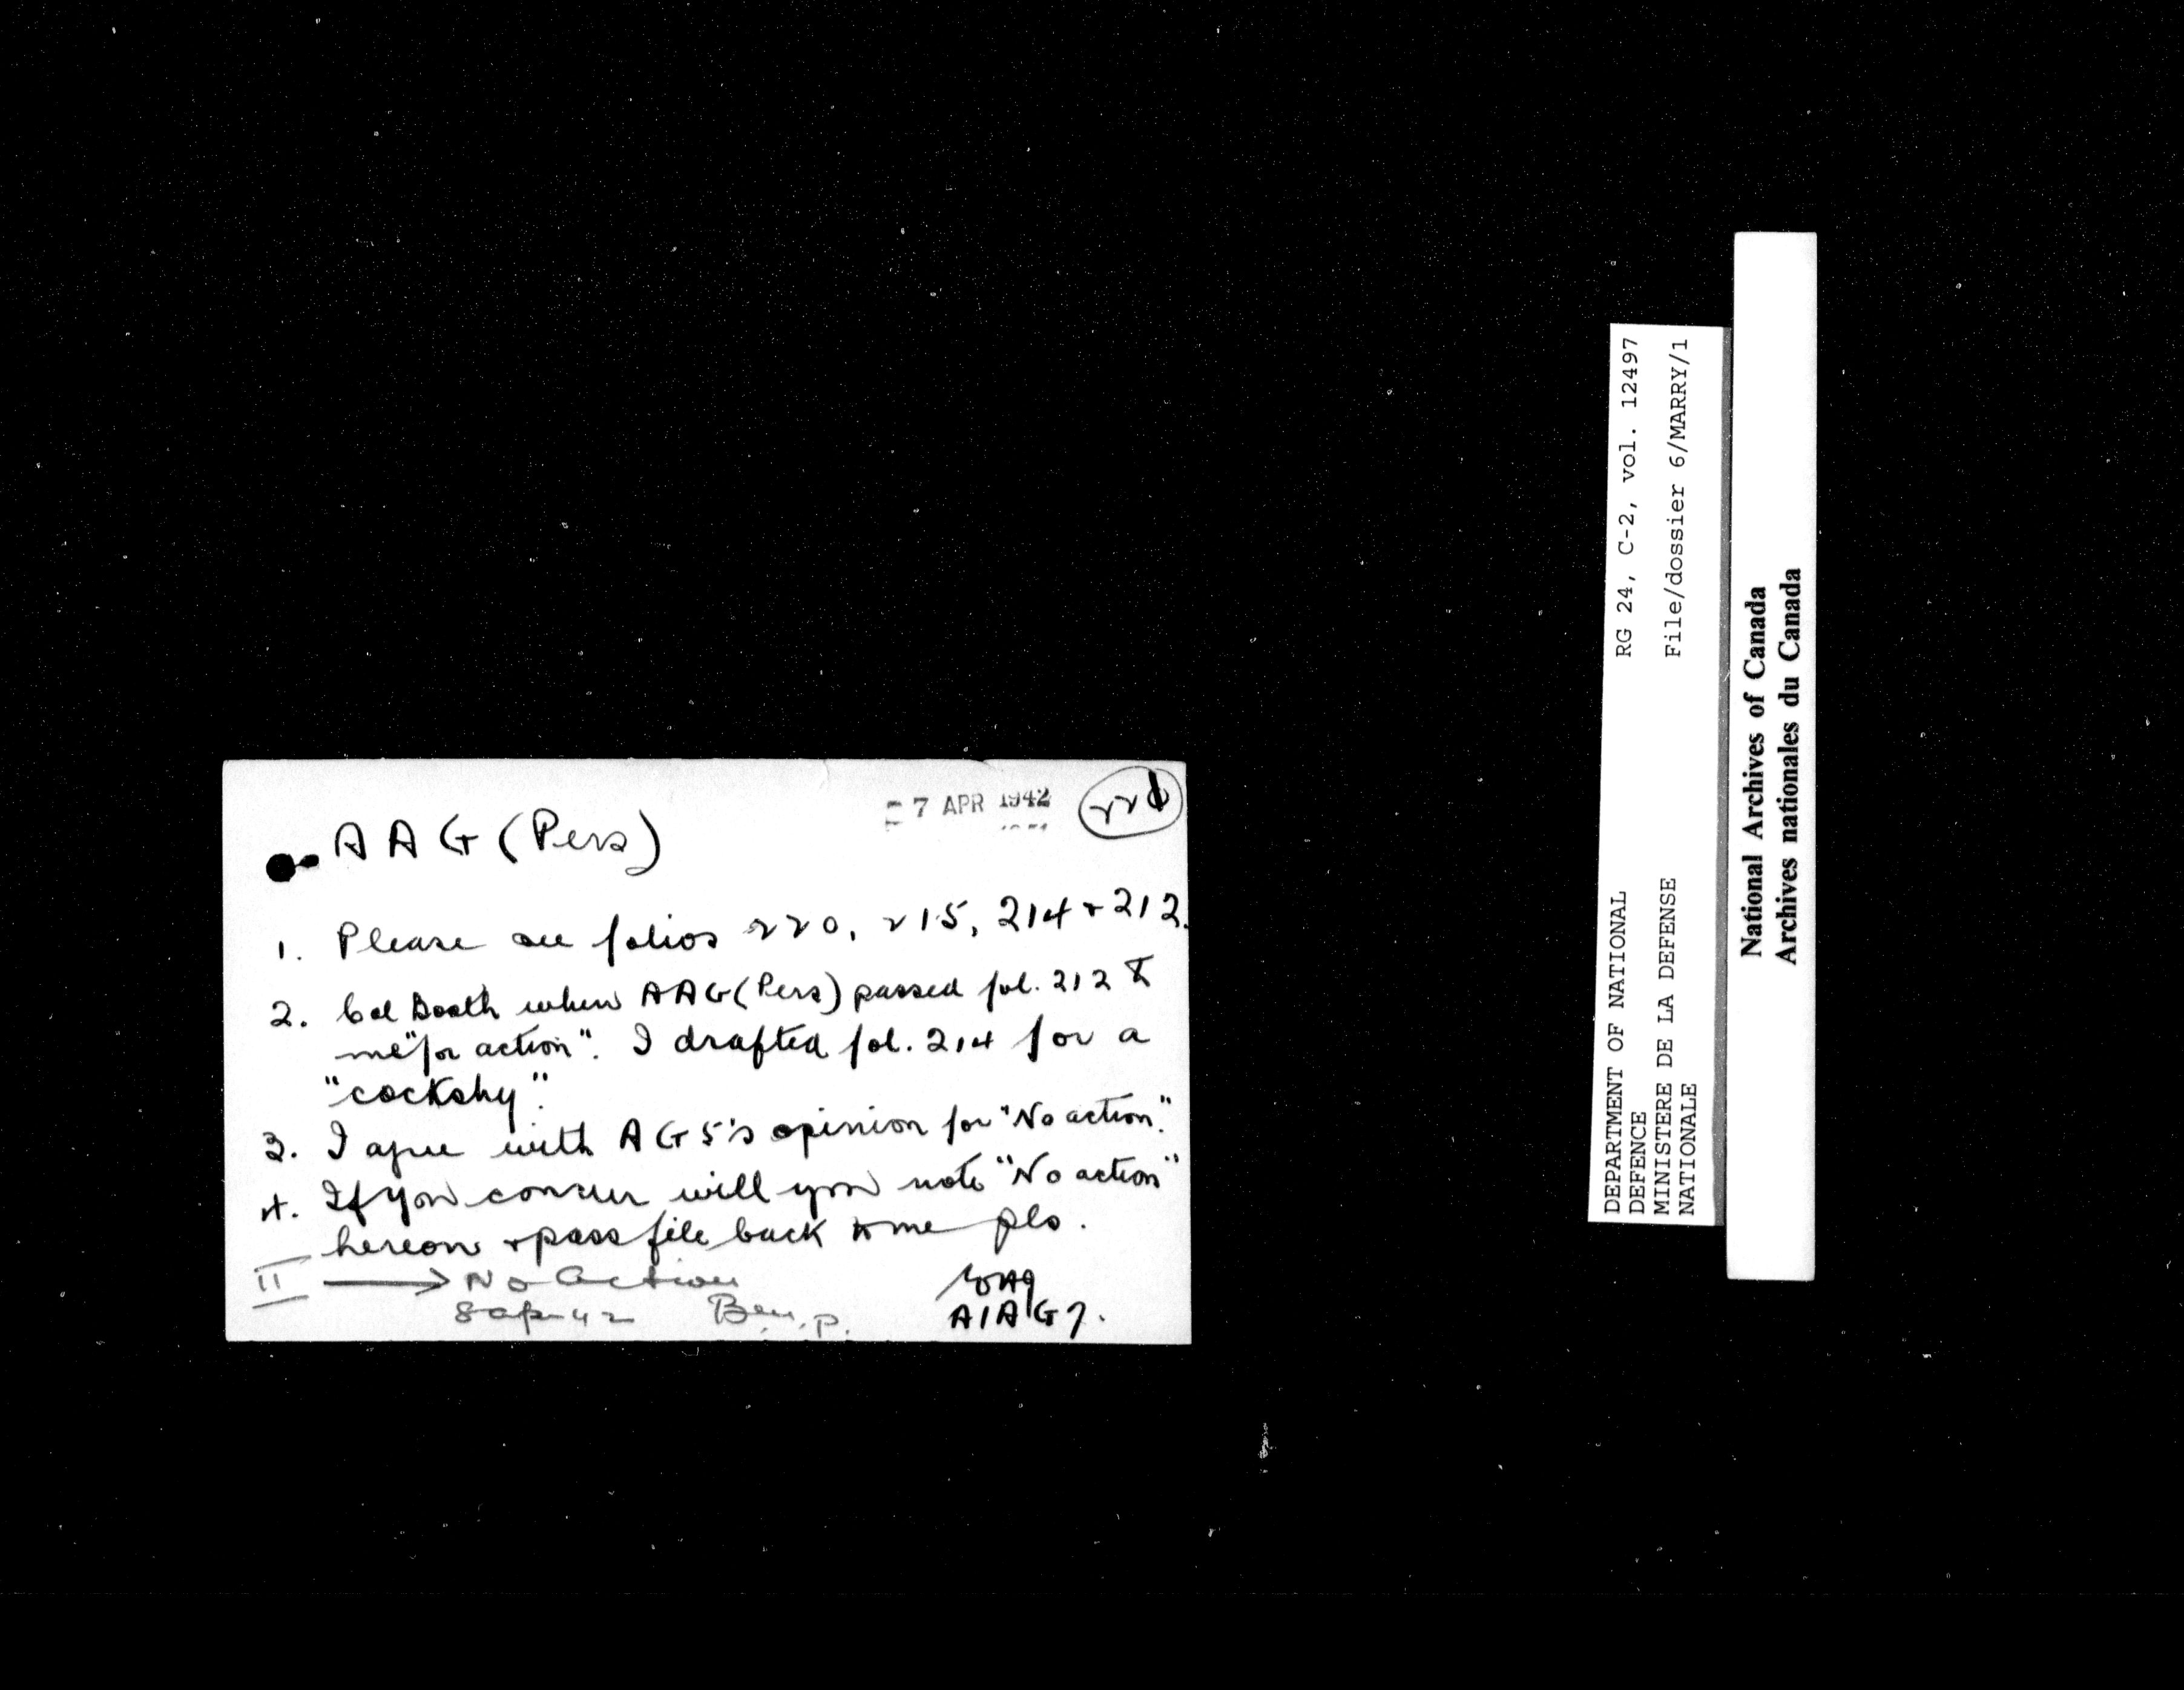 7 APR 1942
221
AAG (Pers)
1. Please see folios 220, 215, 214 + 212.
2. Col Booth when AAG (Pers) passed fol. 212 to
me "for action". I drafted fol. 214 for a
"cockshy".
3. I agree with AG5's opinion for "No action."
4. If you concur will you note "No action"
hereon + pass file back to me pls.
II → No Action
8 Ap 42
A/AG7.
DEPARTMENT OF NATIONAL RG 24, C-2, vol. 12497
DEFENCE
MINISTERE DE LA DEFENSE File/dossier 6/MARRY/1
NATIONALE
National Archives of Canada
Archives nationales du Canada